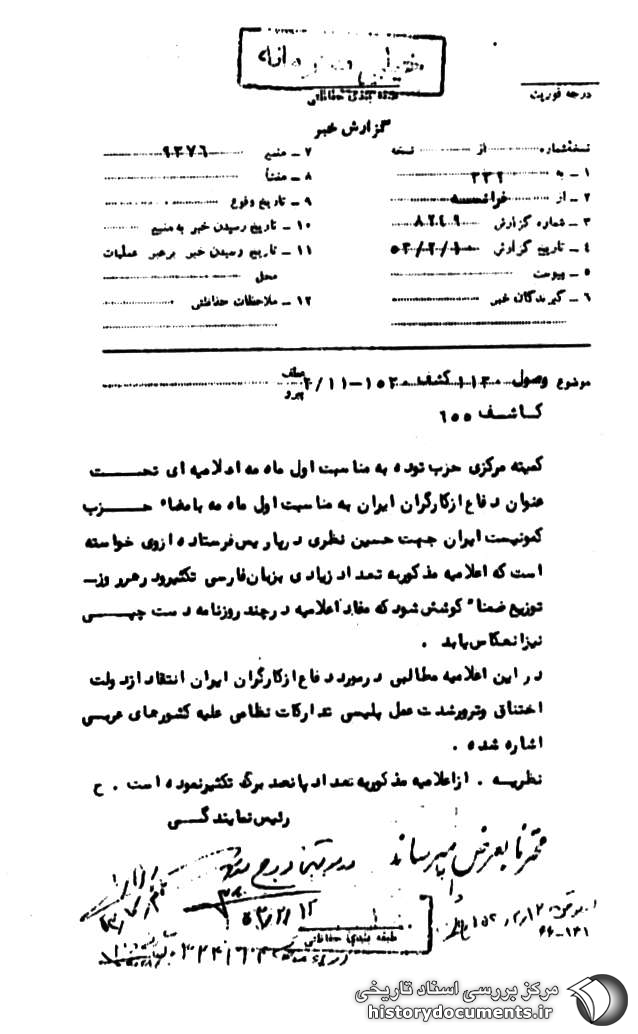 خیلی محرمانه
طبقه بندی حفاظتی
درجه فوریت
گزارش خبر
نسخه شماره از نسخه
۱ ـ به ۳۳۲
۲ ـ از فرانسه
۳ ـ شماره گزارش ۸۲۴۹
۴ ـ تاریخ گزارش ۵۳/۲/۱۰
۵ ـ پیوست
۶ ـ گیرندگان خبر
۷ ـ منبع ۹۳۷۶
۸ ـ منشأ
۹ ـ تاریخ وقوع
۱۰ ـ تاریخ رسیدن خبر به منبع
۱۱ ـ تاریخ رسیدن خبر برهبر عملیات
محل
۱۲ ـ ملاحظات حفاظتی
موضوع وصول ۱۱۳۰ کشف
عطف
پیرو
کاشف ۶۵۵
کمیته مرکزی حزب توده به مناسبت اول ماه مه اعلامیه ای تحت
عنوان دفاع ازکارگران ایران به مناسبت اول ماه مه بامضاء حزب
کمونیست ایران جهت حسین نظری درپاریس فرستاده ازوی خواسته
است که اعلامیه مذکوربه تعداد زیادی بزبان فارسی تکثیرودرهرروز
توزیع ضمناً کوشش شود که مفاد اعلامیه درچند روزنامه دست چپی
نیزانعکاس یابد .
در این اعلامیه مطالبی درمورد دفاع ازکارگران ایران انتقاد ازدولت
اختناق وترورشدت عمل پلیسی تدارکات نظامی علیه کشورهای عربی
اشاره شده .
نظریه . ازاعلامیه مذکوربه تعداد پانصد برگ تکثیرنموده است . ح
رئیس نمایندگی
محترما بعرض میرساند
در بولتن درج شد
۵۳/۲/۱۲
طبقه بندی حفاظتی
مرکز بررسی اسناد تاریخی
historydocuments.ir